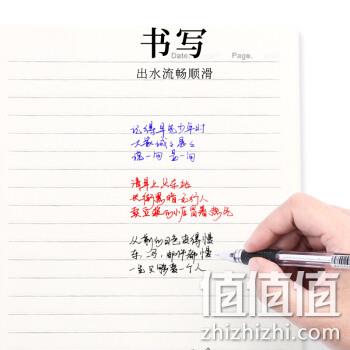 书写
Date. Page.
出水流畅顺滑
记得早先少年时
大家诚々恳々
说一句 是一句
清早上火车站
长街黑暗无行人
卖豆浆的小店冒着热气
从前的日色变得慢
车,马,邮件都慢
一生只够爱一个人
值值值
zhizhizhi.com